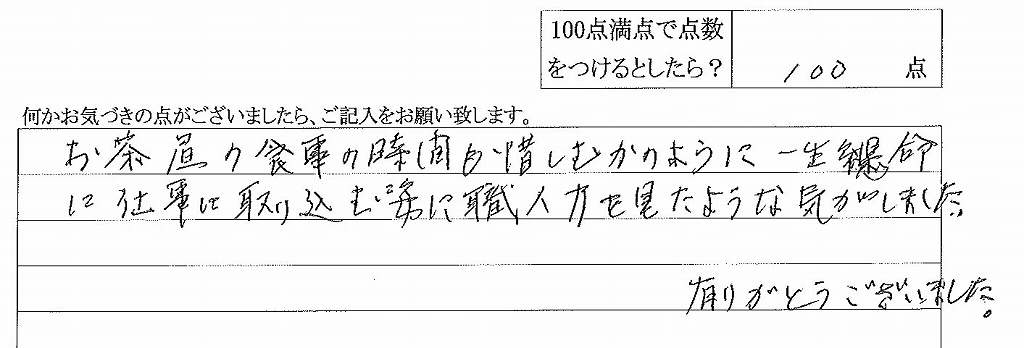 100点満点で点数
をつけるとしたら？
100 点
何かお気づきの点がございましたら、ご記入をお願い致します。
お茶昼の食事の時間も惜しむかのように一生懸命
に仕事に取り込む姿に職人力を見たような気がしました。
有りがとうございました。